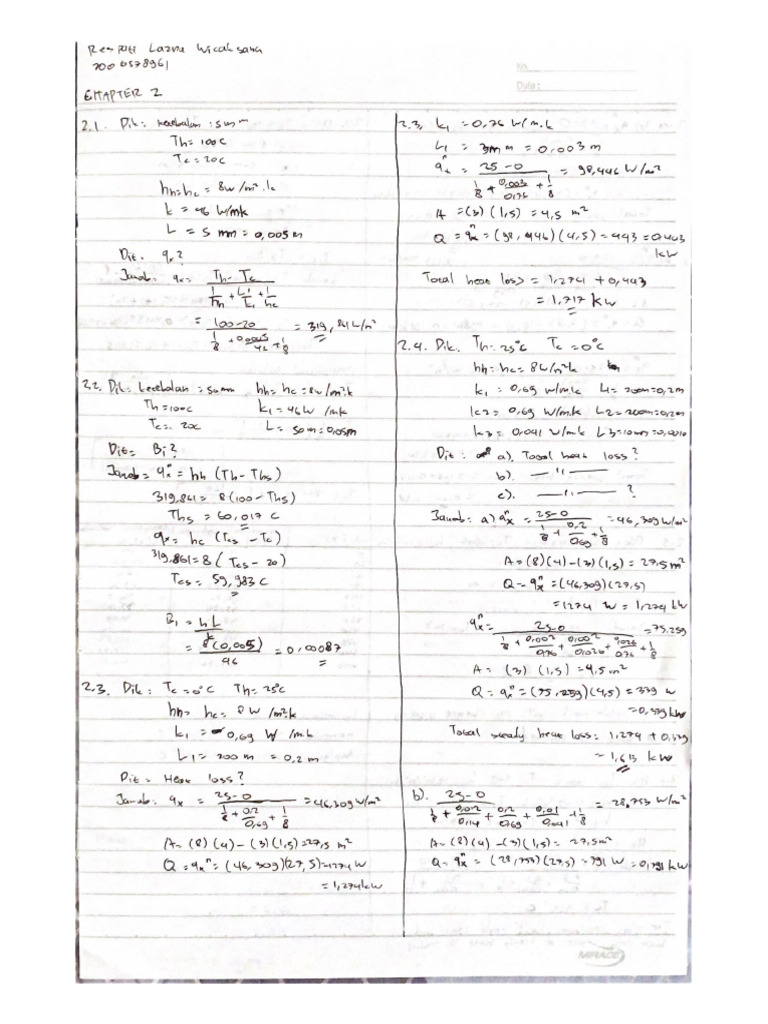 Lazna Wicaksana
No.
Date:
CHAPTER 2
2.1. Dik: ketebalan : 5mm
Th = 100C
Tc = 20C
hh = hc = 8W/m².k
k = 46 W/mk
L = 5 mm = 0,005 m
Dit. qx?
Jawab: qx = Th - Tc
1/hh + L1/k1 + 1/hc
= 100-20 / 1/8 + 0,005/46 + 1/8 = 319,861/m²
2.2. Dik: ketebalan : 50mm hh = hc = 8w/m².k
Th = 100C k1 = 46W/mk
Tc = 20C L = 50m = 0,05m
Dit = Bi?
Jawab = qx" = hh (Th - Ths)
319,861 = 8 (100 - Ths)
Ths = 60,017 C
qx = hc (Tcs - Tc)
319,861 = 8 (Tcs - 20)
Tcs = 59,983 C
Bi = hL / k
= 8(0,005) / 46 = 0,00087
2.3. Dik : Tc = 0°C Th = 25°C
hh = hc = 8W/m².k
k1 = 0,69 W/m.k
L1 = 200m = 0,2 m
Dit = Heat loss?
Jawab: qx = 25-0 / 1/8 + 0,2/0,69 + 1/8 = 46,309 W/m²
A = (8)(4) - (3)(1,5) = 27,5 m²
Q = qx" = (46,309)(27,5) = 1274 W
= 1,274 kW
2.3, k1 = 0,76 W/m.k
L1 = 3mm = 0,003 m
qx" = 25-0 / 1/8 + 0,003/0,76 + 1/8 = 98,446 W/m²
A = (3)(1,5) = 4,5 m²
Q = qx" = (98,446)(4,5) = 443 = 0,443 kW
Total heat loss = 1,274 + 0,443
= 1,717 kW
2.4. Dik. Th = 25°C Tc = 0°C
hh = hc = 8W/m²k
k1 = 0,69 W/m.k L1 = 200m = 0,2m
k2 = 0,69 W/m.k L2 = 200m = 0,2m
k3 = 0,041 W/m.k L3 = 10mm = 0,0010
Dit : a). Total heat loss?
b). —"—
c). —"— ?
Jawab: a) qx" = 25-0 / 1/8 + 0,2/0,69 + 1/8 = 46,309 W/m²
A = (8)(4) - (3)(1,5) = 27,5 m²
Q = qx" = (46,309)(27,5)
= 1274 W = 1,274 kW
qx" = 25-0 / 1/8 + 0,002/0,76 + 0,002/0,026 + 0,026/0,76 + 1/8 = 75,259
A = (3)(1,5) = 4,5 m²
Q = qx" = (75,259)(4,5) = 339 W
= 0,339 kW
Total steady heat loss: 1,274 + 0,339
= 1,613 kW
b). 25-0 / 1/8 + 0,012/0,114 + 0,2/0,69 + 0,01/0,041 + 1/8 = 28,753 W/m²
A = (8)(4) - (3)(1,5) = 27,5 m²
Q = qx" = (28,753)(27,5) = 791 W = 0,791 kW
MIRACE